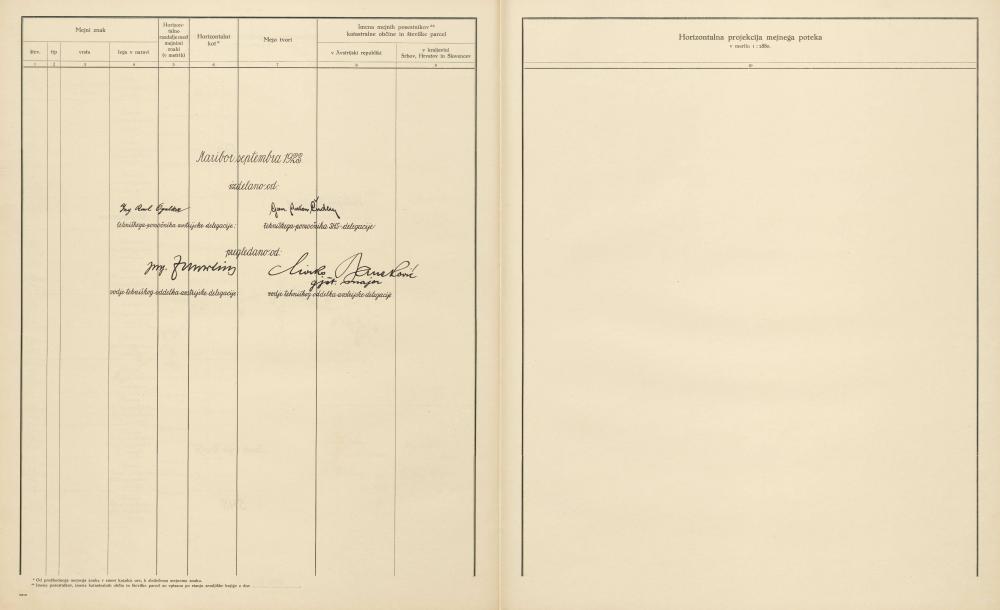 Mejni znak
štev.
tip
vrsta
lega v naravi
Horizon-
talne
razdalje med
mejnimi
znaki
(v metrih)
Horizontalni
kot*
Mejo tvori
Imena mejnih posestnikov**
katastralne občine in številke parcel
v Avstrijski republiki
v kraljevini
Srbov, Hrvatov in Slovencev
1 2 3 4 5 6 7 8 9
Maribor, septembra 1923
izdelano od:
tehniškega pomočnika avstrijske delegacije:
tehniškega pomočnika SHS-delegacije
pregledano od:
Ing.
Mirko
gjšt. major
vodje tehniškog oddelka avstrijske delegacije:
vodje tehniškog oddelka avstrijske delegacije
* Od predhodnega mejnega znaka v smeri kazalca ure, k sledečemu mejnemu znaku.
** Imena posestnikov, imena katastralnih občin in številke parcel so vpisana po stanju zemljiške knjige z dne
Horizontalna projekcija mejnega poteka
v merilu 1 : 2880.
10